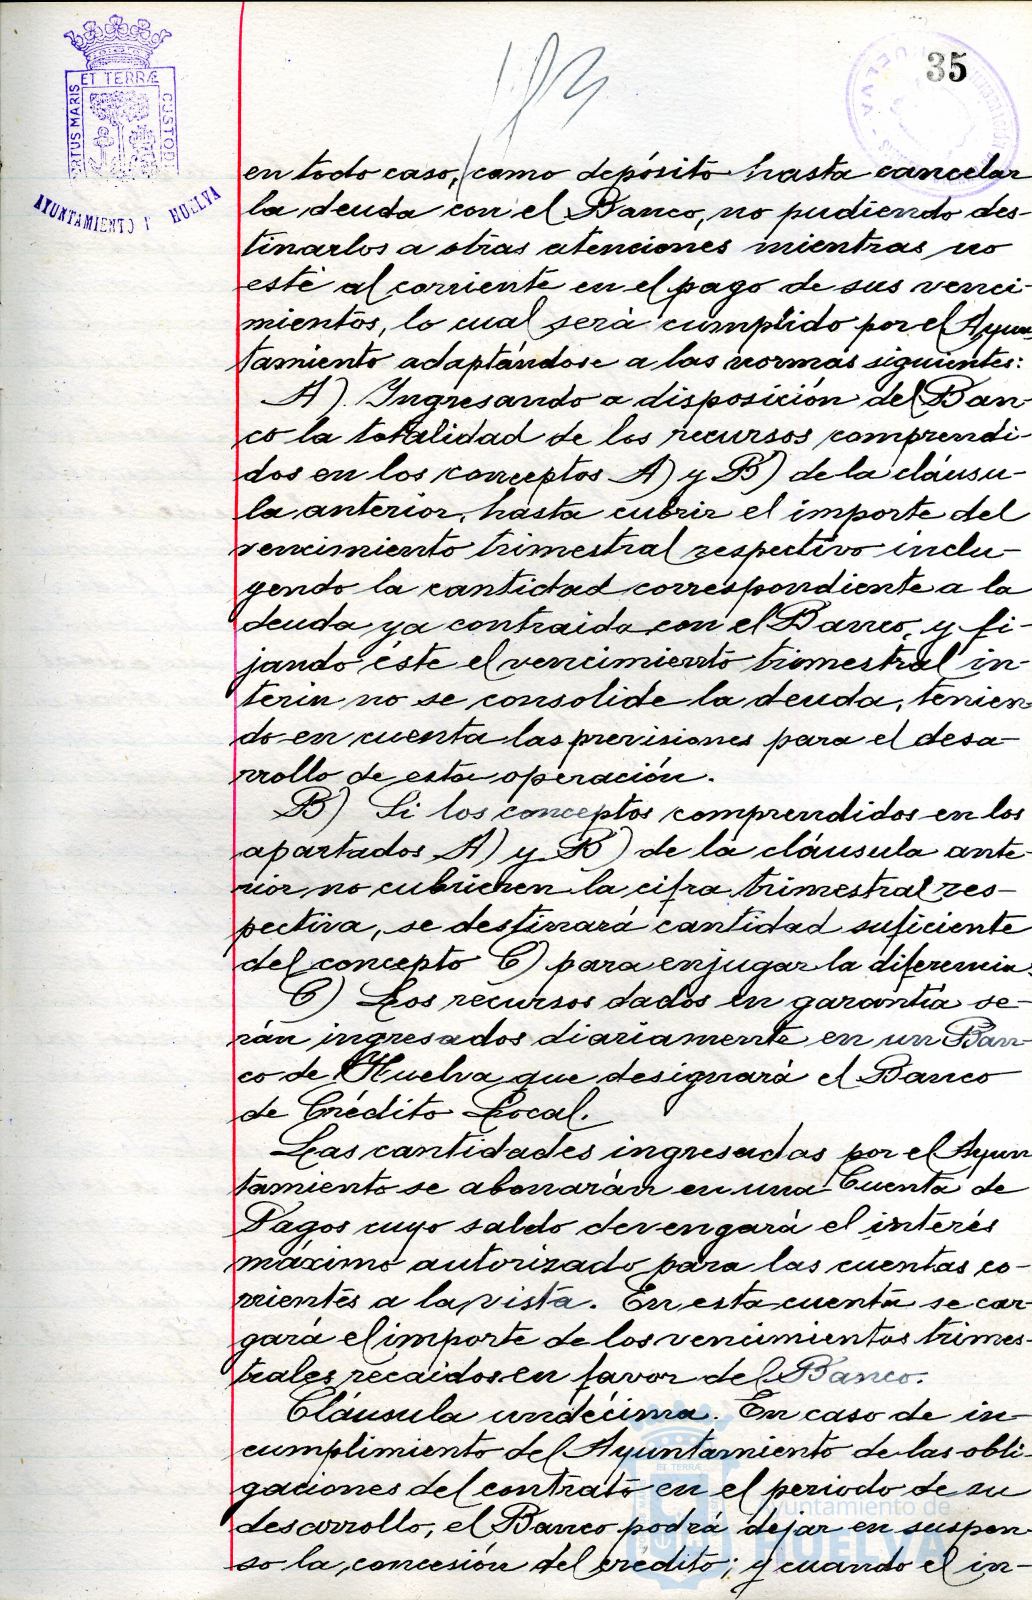 35
ET TERRÆ
CUSTOD
AYUNTAMIENTO HUELVA
en todo caso, como depósito hasta cancelar
la deuda con el Banco, no pudiendo des-
tinarlos a otras atenciones mientras no
esté al corriente en el pago de sus venci-
mientos, lo cual será cumplido por el Ayun-
tamiento adaptándose a las normas siguientes:
A) Ingresando a disposición del Ban-
co la totalidad de los recursos comprendi-
dos en los conceptos A) y B) de la cláusu-
la anterior, hasta cubrir el importe del
vencimiento trimestral respectivo inclu-
yendo la cantidad correspondiente a la
deuda ya contraida con el Banco, y fi-
jando éste el vencimiento trimestral in-
terin no se consolide la deuda, tenien-
do en cuenta las previsiones para el desa-
rrollo de esta operación.
B) Si los conceptos comprendidos en los
apartados A) y B) de la cláusula ante-
rior no cubriesen la cifra trimestral res-
pectiva, se destinará cantidad suficiente
del concepto C) para enjugar la diferencia.
C) Los recursos dados en garantía se-
rán ingresados diariamente en un Ban-
co de Huelva que designará el Banco
de Crédito Local.
Las cantidades ingresadas por el Ayun-
tamiento se abonarán en una Cuenta de
Pagos cuyo saldo devengará el interés
máximo autorizado para las cuentas co-
rrientes a la vista. En esta cuenta se car-
gará el importe de los vencimientos trimes-
trales recaidos en favor del Banco.
Cláusula undécima. En caso de in-
cumplimiento del Ayuntamiento de las obli-
gaciones del contrato en el periodo de su
desarrollo, el Banco podrá dejar en suspen-
so la concesión del crédito; y cuando el in-
Ayuntamiento de
HUELVA